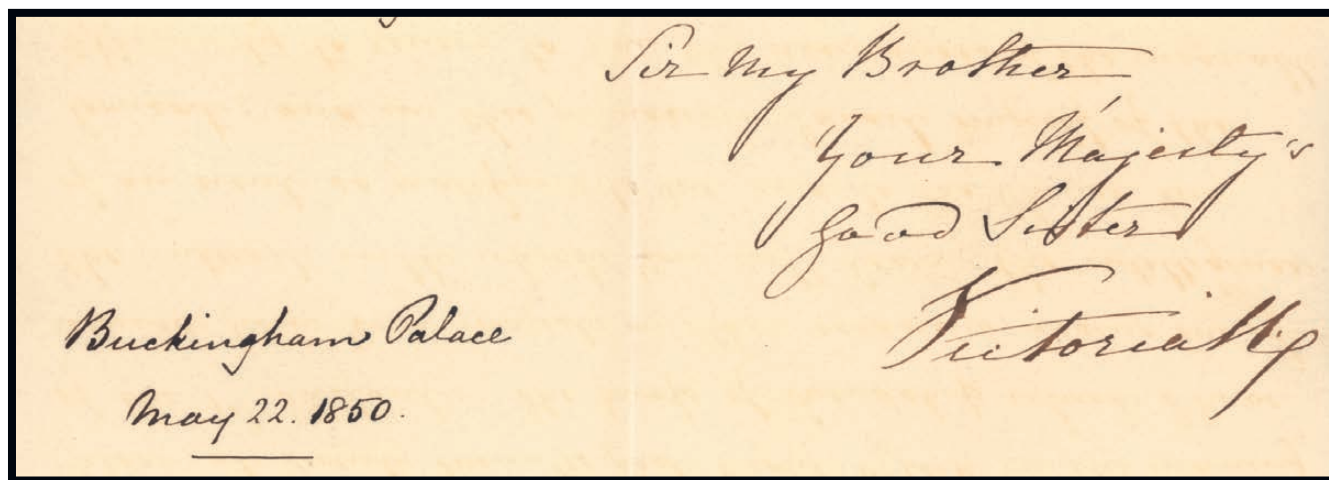 Sir My Brother
Your Majesty's
Good Sister
Victoria R
Buckingham Palace
May 22. 1850.